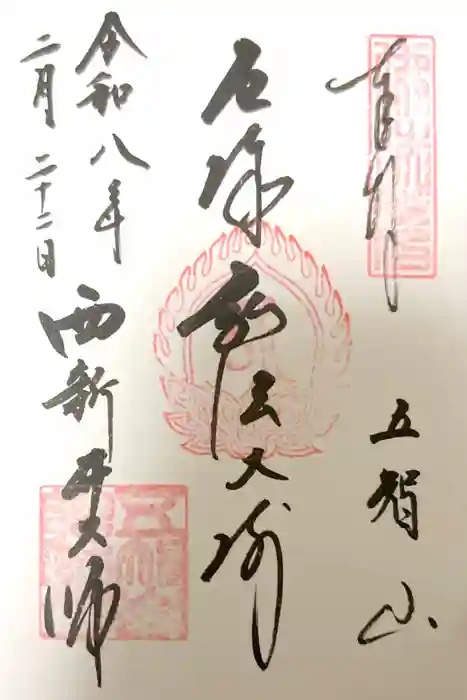 奉拝
五智山
厄除弘法大師
令和八年
二月二十二日
西新井大師